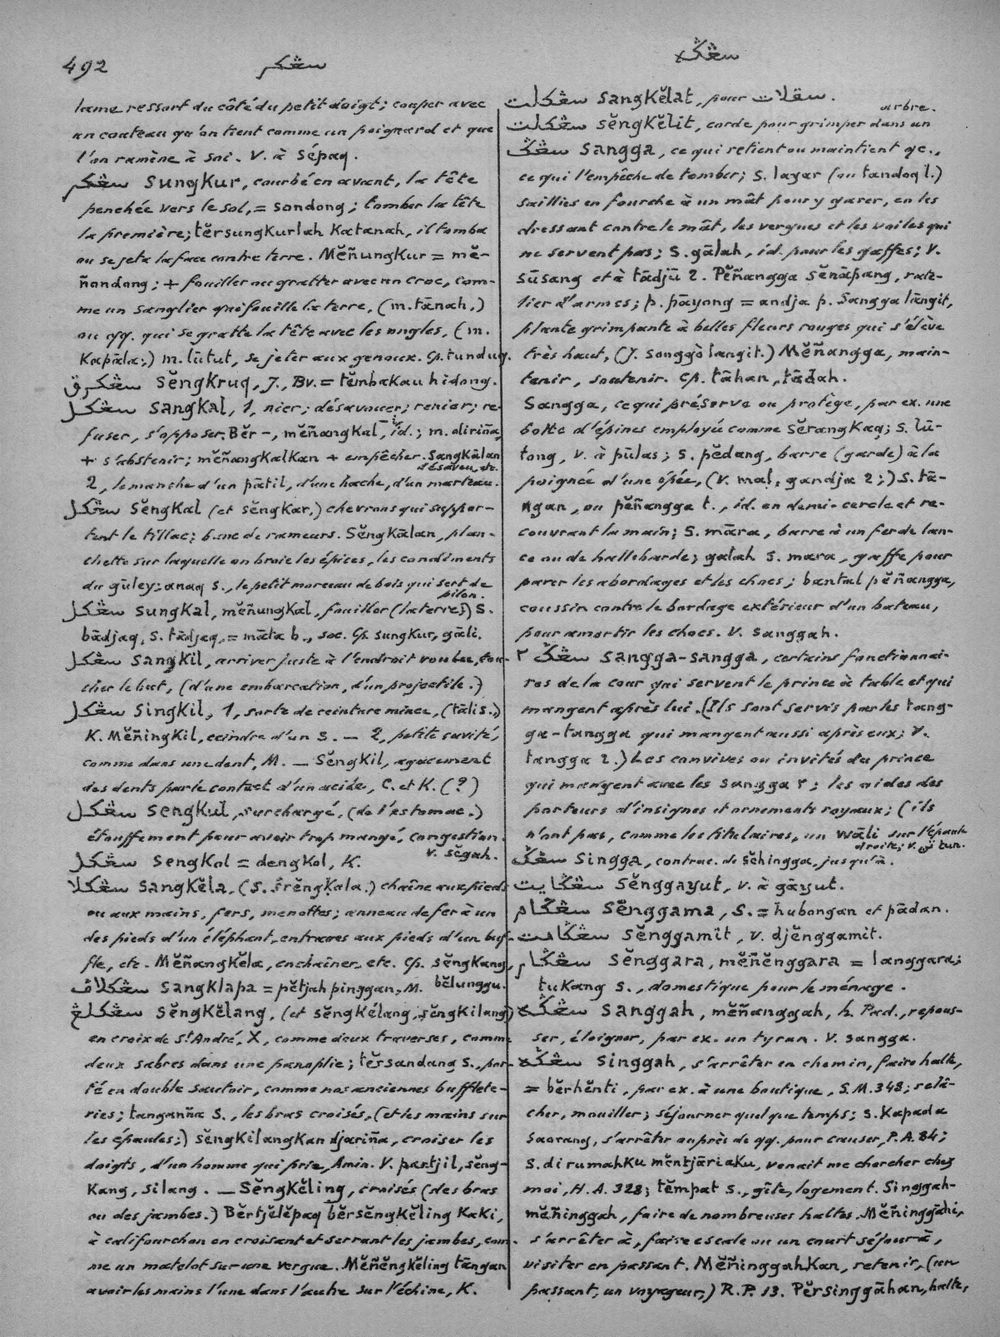 492
سڠكر
سڠݢه
lame ressort du côté du petit doigt; couper avec
un couteau qu'on tient comme un poignard et que
l'on ramène à soi. V. à sépaq.
سڠكر sungkur, courbé en avant, la tête
penchée vers le sol, = sondong; tomber la tête
la première; tĕrsungkurlah katanah, il tomba
ou se jeta la face contre terre. Mĕñungkur = mĕ-
ñondong; + fouiller ou gratter avec un croc, com-
me un sanglier qui fouille la terre, (m. tānah,)
ou qq. qui se gratte la tête avec les ongles, (m.
kapāla;) m. lūtut, se jeter aux genoux. Cp. tunduq.
سڠكرق sĕngkruq, J., Bv. = tĕmbakau hidong.
سڠكل sangkal, 1, nier; désavouer; renier; re-
fuser, s'opposer. Bĕr-, mĕñangkal, id.; m. diriña,
+ s'abstenir; mĕñangkalkan + empêcher. Sangkālan
désaveu, etc.
2, le manche d'un pātil, d'une hache, d'un marteau.
سڠكل sĕngkal (et sĕngkar,) chevrons qui suppor-
tent le tillac; banc de rameurs. Sĕngkālan, plan-
chette sur laquelle on broie les épices, les condiments
du gūley; anaq s., le petit morceau de bois qui sert de
pilon.
سڠكل sungkal, mĕñungkal, fouiller (la terre,) S.
bādjaq, s. tādjaq, = māta b., soc. Cp. sungkur, gāli.
سڠكل sangkil, arriver juste à l'endroit voulu, tou-
cher le but, (d'une embarcation, d'un projectile.)
سڠكل singkil, 1, sorte de ceinture mince, (tāli s.)
K. Mĕñingkil, ceindre d'un s. — 2, petite cavité,
comme dans une dent, M. — Sĕngkil, agacement
des dents par le contact d'un acide, C. et K. (?)
سڠكل sengkul, surchargé, (de l'estomac.)
étouffement pour avoir trop mangé, congestion.
V. sĕgah.
سڠكل sengkol = dengkol, K.
سڠكلا sangkĕla, (S. srĕngkala.) chaîne aux pieds
ou aux mains, fers, menottes; anneau de fer à un
des pieds d'un éléphant, entraves aux pieds d'un buf-
fle, etc. Mĕñangkĕla, enchaîner, etc. Cp. sĕngkang,
bĕlunggu.
سڠكلاڤ sangklapa = pĕtjah pinggan, M.
سڠكلڠ sĕngkĕlang, (et sĕngkélang, sĕngkilang)
en croix de St André, X, comme deux traverses, comme
deux sabres dans une panoplie; tĕrsandang s., por-
té en double sautoir, comme nos anciennes buffleteries;
ries; tanganña s., les bras croisés, (et les mains sur
les épaules;) sĕngkilangkan djariña, croiser les
doigts, d'un homme qui prie, Amin. V. partjil, sĕng-
kang, silang. — Sĕngkĕling, croisés (des bras
ou des jambes.) Bĕrtjĕlĕpaq bĕrsĕngkĕling kaki,
à califourchon en croisant et serrant les jambes, com-
me un matelot sur une vergue. Mĕñĕngkĕling tāngan
avoir les mains l'une dans l'autre sur l'échine, K.
سڠكلت sangkĕlat, pour سقلات.
سڠكلت sĕngkĕlit, corde pour grimper dans un
arbre.
سڠݢ sangga, ce qui retient ou maintient qc.,
ce qui l'empêche de tomber; s. layar (ou tandoq l.)
saillies en fourche à un mât pour y garer, en les
dressant contre le mât, les vergues et les voiles qui
ne servent pas; s. gālah, id. pour les gaffes; V.
sūsang et à tādjū 2. Pĕñangga sĕnāpang, rate-
lier d'armes; p. pāyong = andja p. Sangga lāngit,
plante grimpante à belles fleurs rouges qui s'élève
très haut, (J. songgò langit.) Mĕñangga, main-
tenir, soutenir. Cp. tāhan, tādah.
Sangga, ce qui préserve ou protège, par ex. une
botte d'épines employée comme sĕrangkaq; s. lū-
tong, v. à pūlas; s. pĕdang, barre (garde) à la
poignée d'une épée, (V. mal, gandja 2;) s. tā-
ngan, ou pĕñangga t., id. en demi-cercle et re-
couvrant la main; s. māra, barre à un fer de lan-
ce ou de hallebarde; galah s. mara, gaffe pour
parer les abordages et les chocs; bantal pĕñangga,
coussin contre le bordage extérieur d'un bateau,
pour amortir les chocs. V. sanggah.
سڠݢ ٢ sangga-sangga, certains fonctionnai-
res de la cour qui servent le prince à table et qui
mangent après lui. (Ils sont servis par les tang-
ga-tangga qui mangent aussi après eux; V.
tangga 2.) Les convives ou invités du prince
qui mangent avec les sangga ٢; les aides des
porteurs d'insignes et ornements royaux; (ils
n'ont pas, comme les titulaires, un wāli sur l'épaule
droite; v. tun.
سڠݢ singga, contrac. de sĕhingga, jusqu'à.
سڠݢايت sĕnggayut, v. à gāyut.
سڠݢام sĕnggama, S. = hubongan et pādan.
سڠݢامت sĕnggamit, v. djĕnggamit.
سڠݢار sĕnggara, mĕñĕnggara = langgara;
tukang s., domestique pour le ménage.
سڠݢه sanggah, mĕñanggah, h. Pad., repous-
ser, éloigner, par ex. un tyran. V. sangga.
سڠݢه singgah, s'arrêter en chemin, faire halte,
= bĕrhĕnti, par ex. à une boutique, S.M. 348; relâ-
cher, mouiller; séjourner quelque temps; s. kapada
saorang, s'arrêter auprès de qq. pour causer, P.A. 84;
s. di rumahku mĕntjāriaku, venait me chercher chez
moi, H.A. 328; tĕmpat s., gîte, logement. Singgah-
mĕñinggah, faire de nombreuses haltes. Mĕñinggāhi,
s'arrêter à, faire escale ou un court séjour à,
visiter en passant. Mĕñinggahkan, retenir, (un
passant, un voyageur,) R.P. 13. Pĕrsinggāhan, halte,